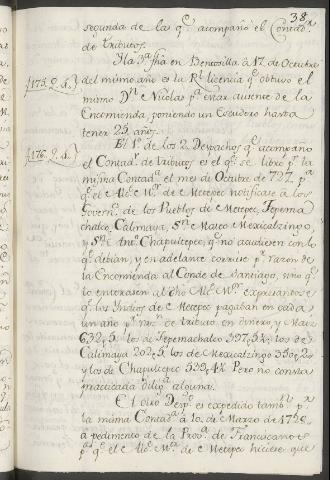 38.
segunda de las q.e acompaño el Contad.r
de tributos.
Y la 3.a fha en Venvosilla à 17. de Octubre
(175. Q. S.) del mismo año es la R.l licencia q.e obtuvo el
mismo D.n Nicolas p.a estar ausente de la
Encomienda, poniendo un Escudero hasta
tener 25 años.
(176. Q. S.) El 1.o de los 2. Despachos q.e acompaño
el Contad.r de tributos es el q.e se libro p.r la
misma Contad.a el mes de Octubre de 727. p.a
q.e el Alc.e M.or de Metepec notificase à los
Govern.s de los Pueblos de Metepec, Tepema
chalco, Calimaya, S.n Mateo Mexicalzingo,
y S.n Ant.o Chapultepec, q.e no acudiesen con lo
q.e debian, y en adelante corriese p.r razon de
la Encomienda al Conde de Santiago, sino q.e
lo enterasen al dho Alc.e M.or expresandose
q.e los Yndios de Metepec pagaban en cada
un año p.r raz.n de tributo en dinero, y Maiz
632 p.s los de Tepemachalco 397 p.s los de
Calimaya 202 p.s los de Mexicalzingo 350 p.s
y los de Chapultepec 529 p.s Pero no consta
practicada dilig.a alguna.
El otro Desp.o es expedido tamb.n p.r
la misma Contad.a à 10 de Marzo de 1728
à pedimento de la Prov.a de Franciscanos
p.a q.e el Alc.e M.or de Metepec hiciere que